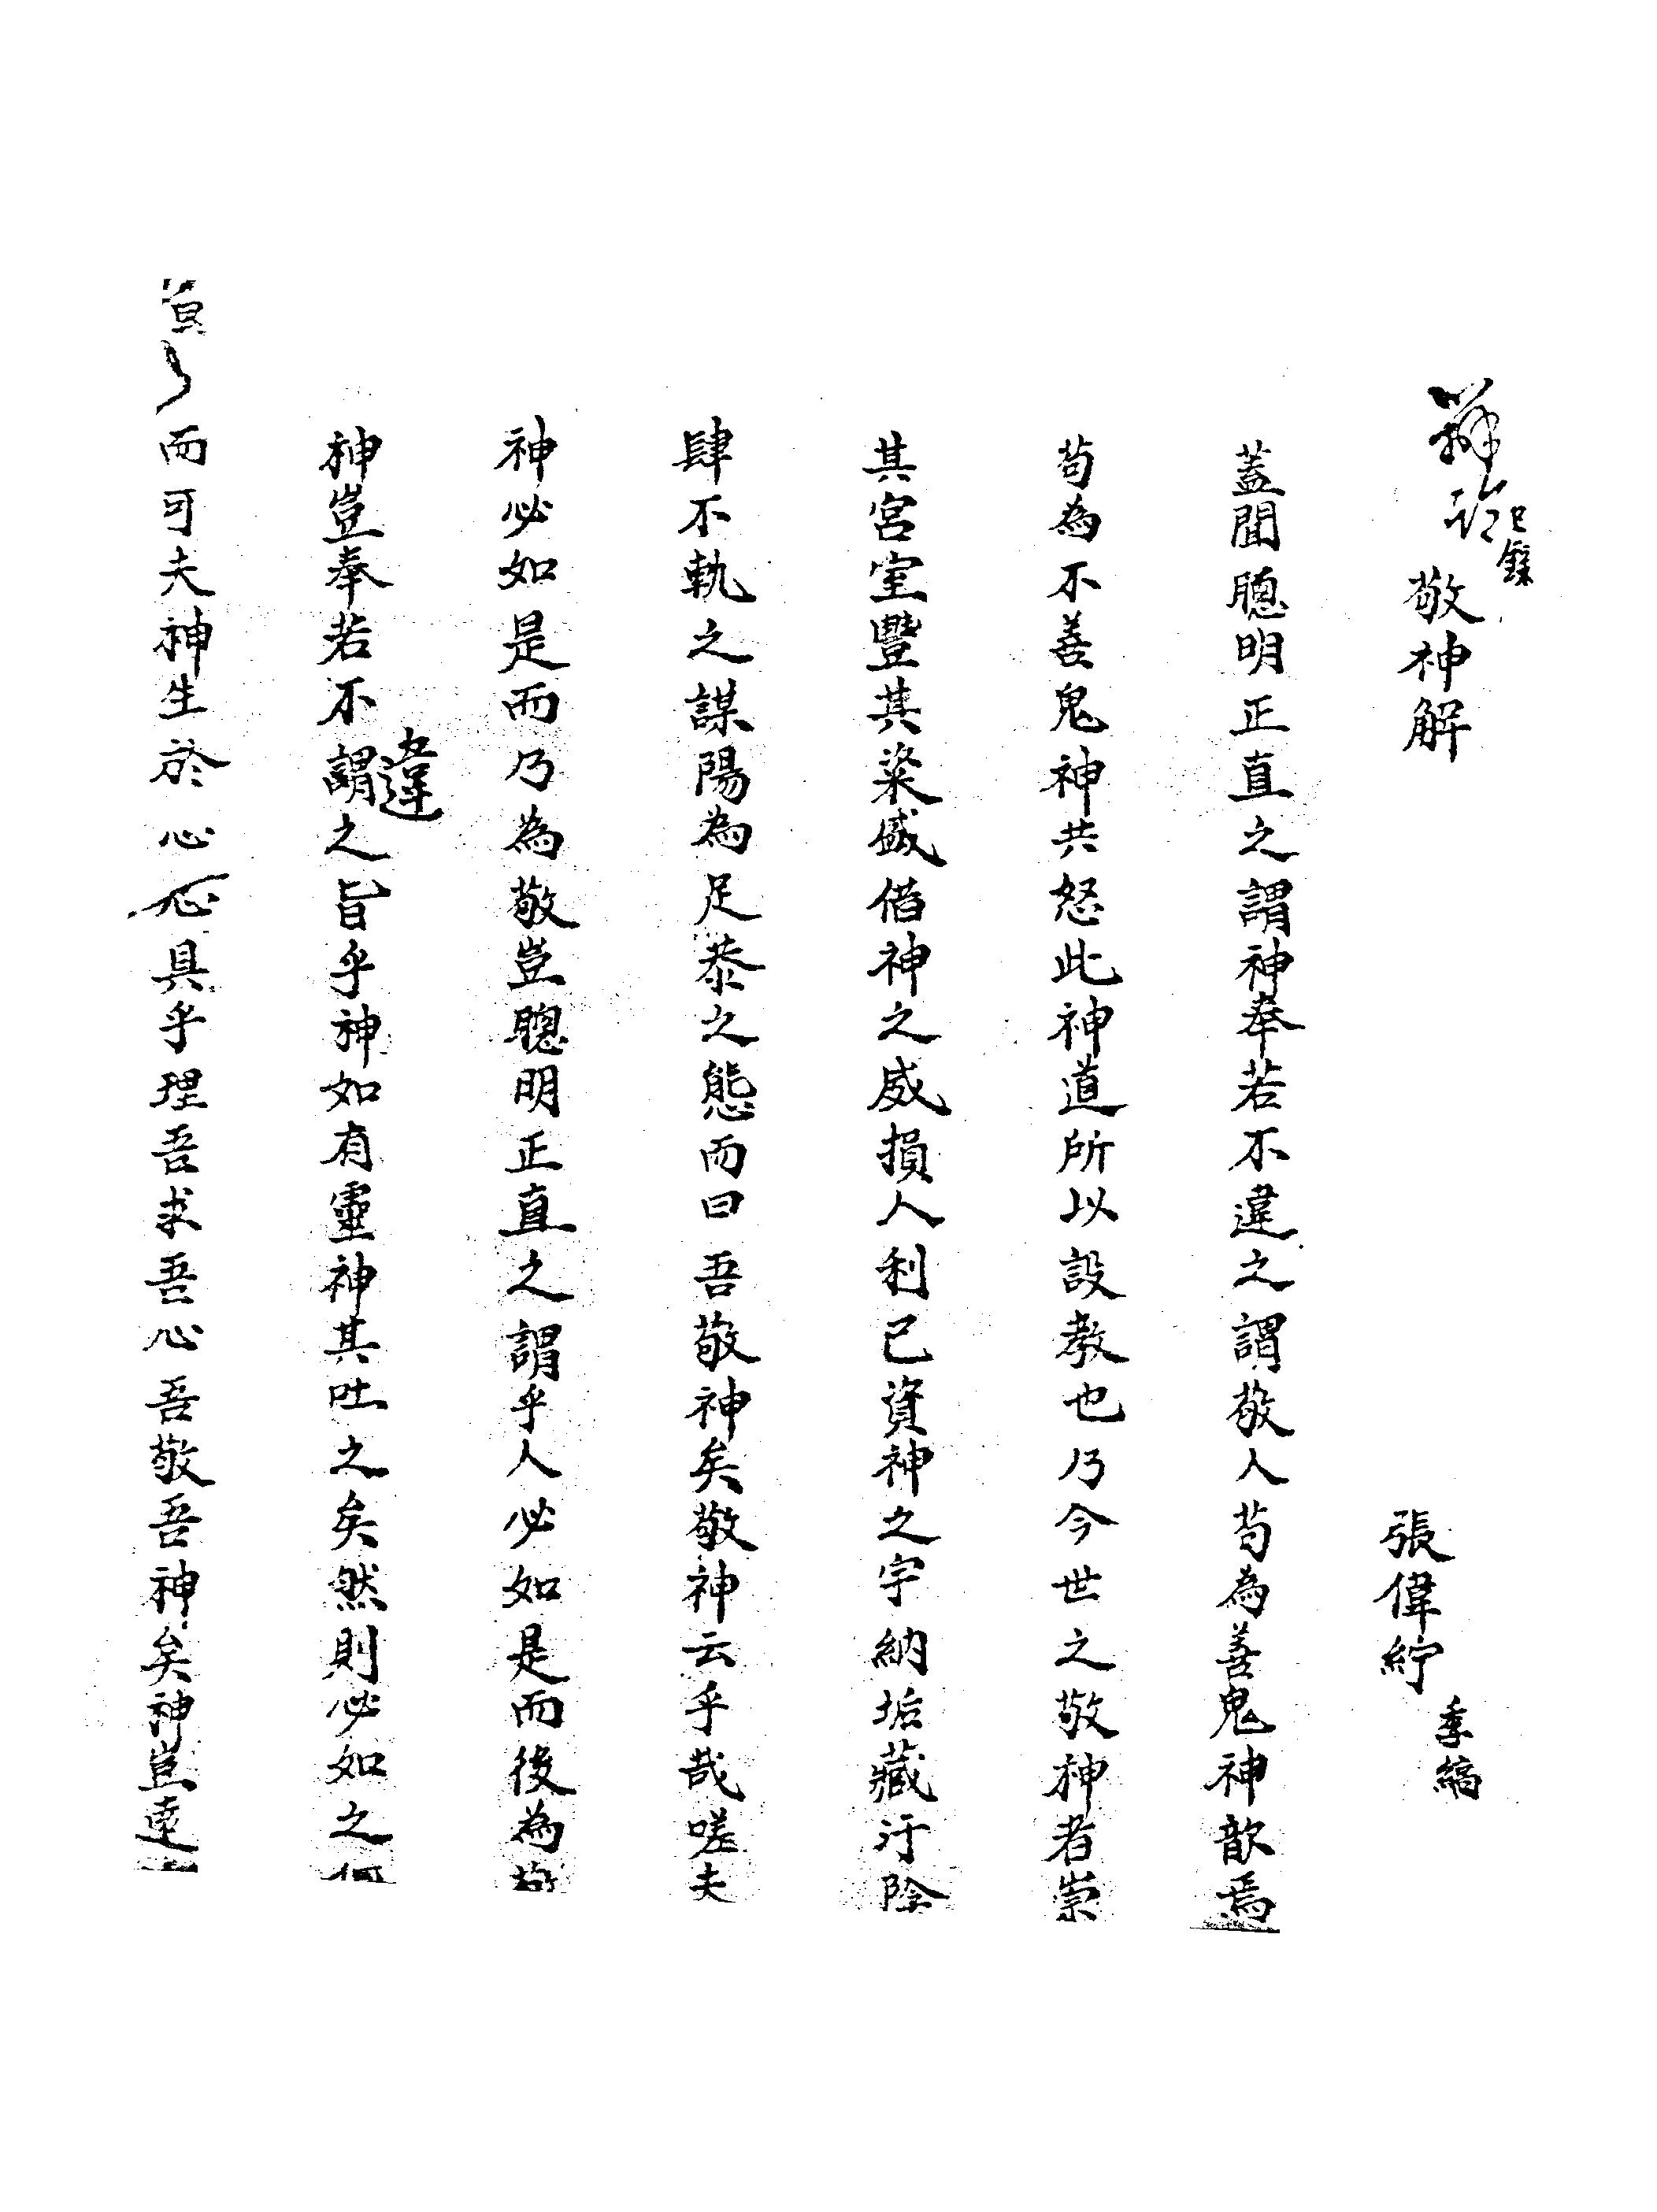 已錄
敬神解
張偉紵
季縞
蓋聞聰明正直之謂神奉若不違之謂敬人茍為善鬼神歆焉
茍為不善鬼神共怒此神道所以設教也乃今世之敬神者崇
其宮室豐其粢盛借神之威損人利己資神之宇納垢藏汙陰
肆不軌之謀陽為足恭之態而曰吾敬神矣敬神云乎哉嗟夫
神必如是而乃為敬豈聰明正直之謂乎人必如是而後為敬
神豈奉若不謂之旨乎神如有靈神其吐之矣然則必如之何
違
而可夫神生於心心具乎理吾求吾心吾敬吾神矣神豈遠